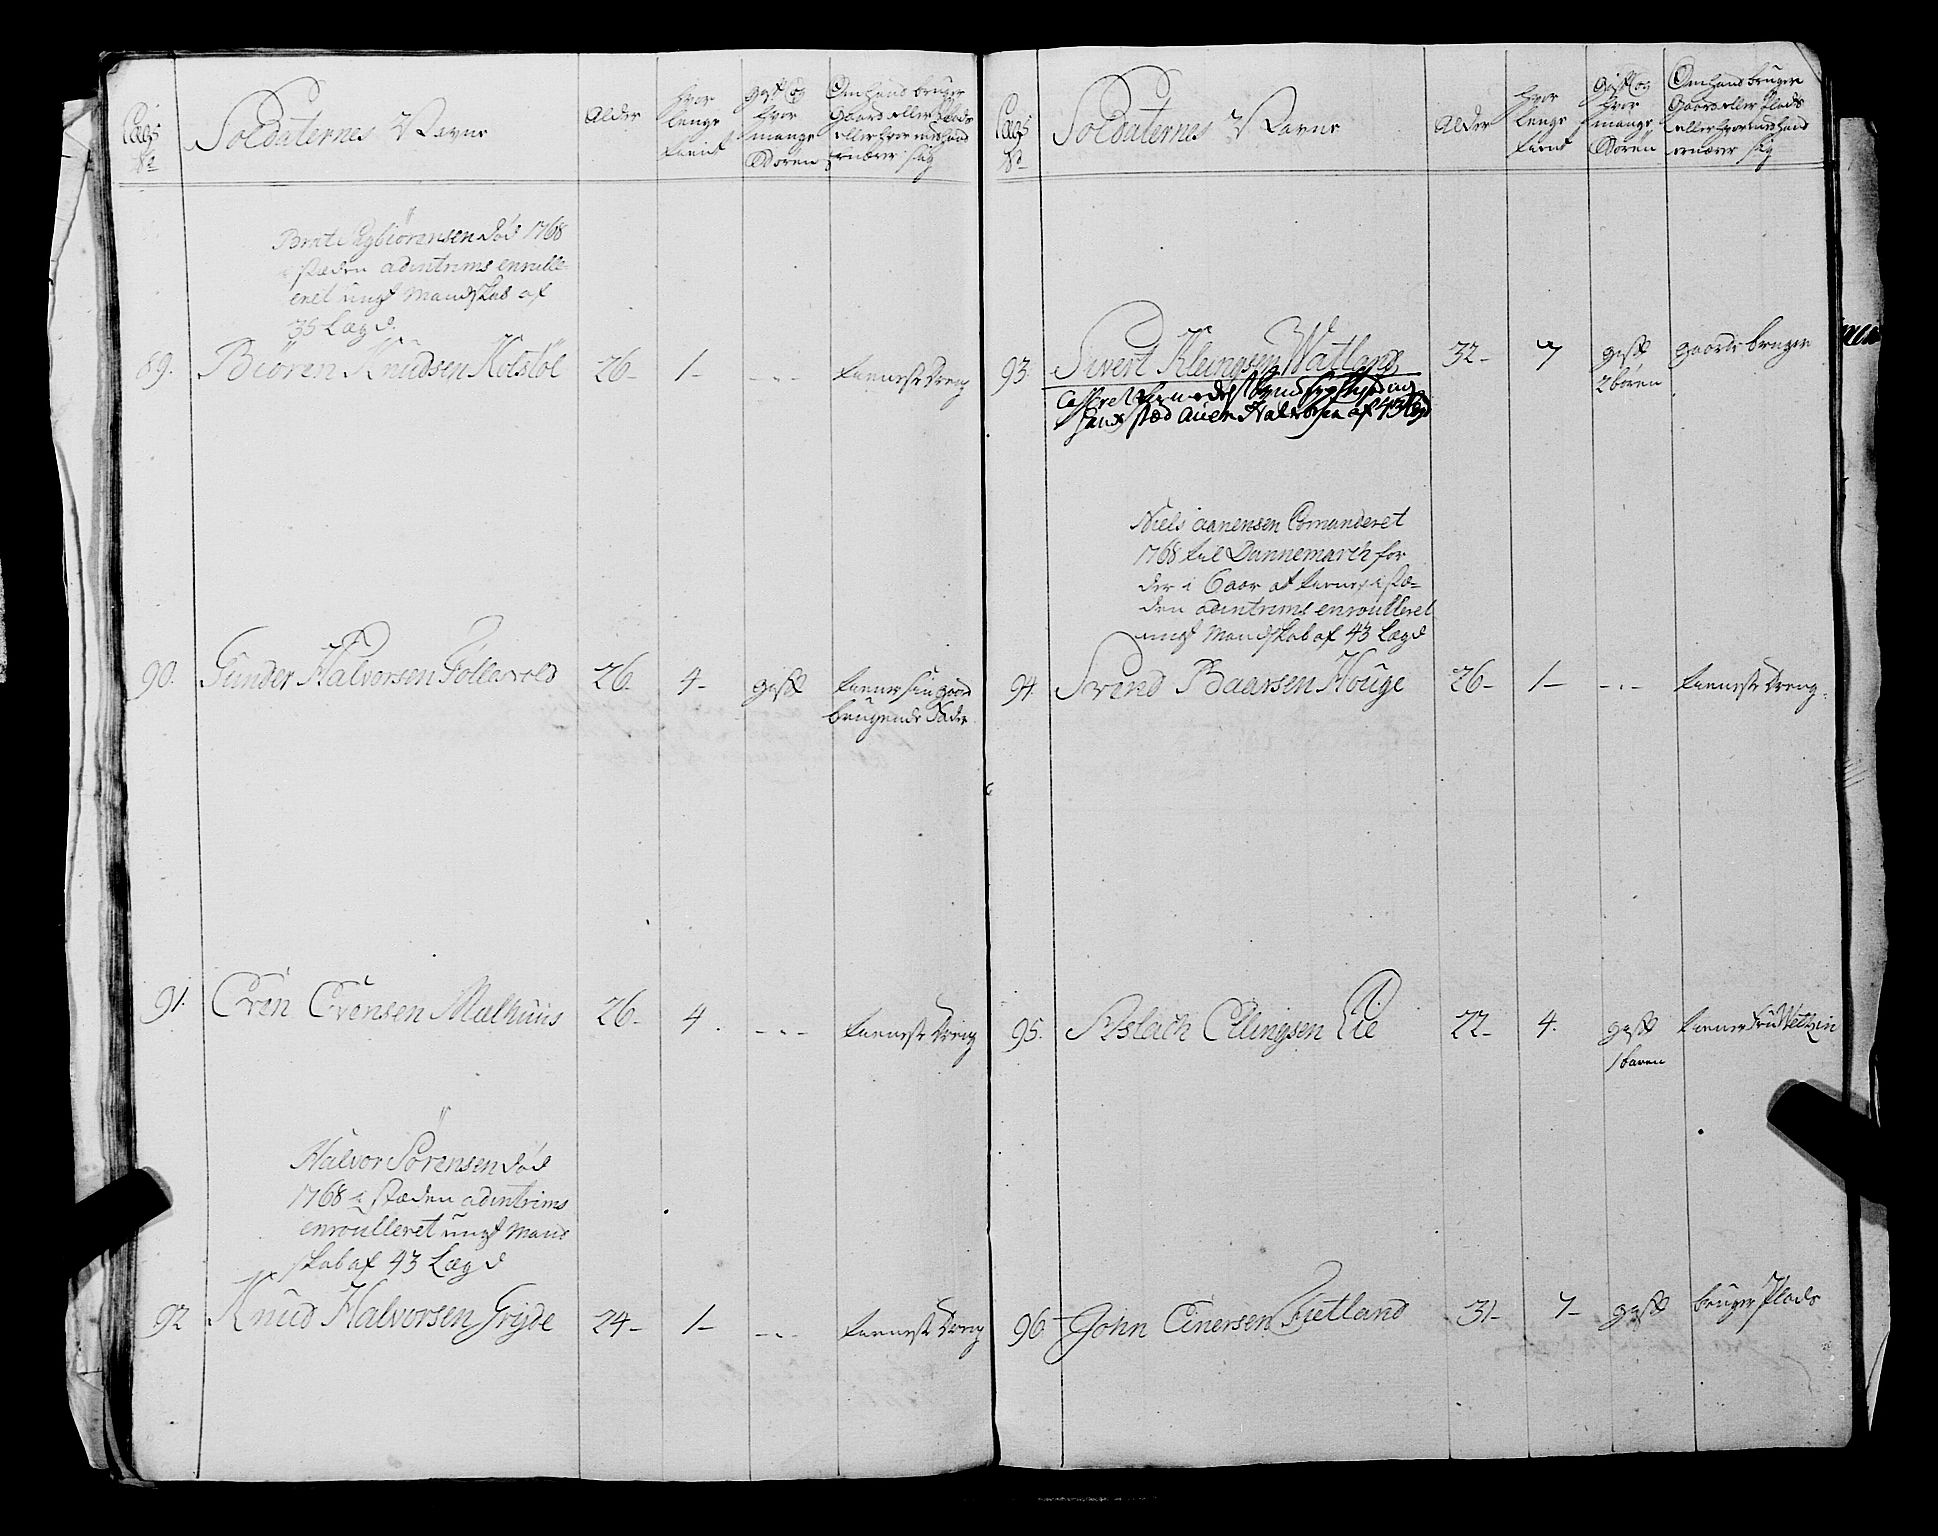 Lægs
No
Soldaternes Navne
Alder
hvor
lenge
tient
gift og
hvor
mange
Bören
Om hand bruger
Gaard eller Plads
eller hvormed hand
ernærer sig
Sigbiörensen död 1768
i stæden adintrims enrulle-
eret ungt Mandskab af
35 Lægd.
89. Biören Knudsen Kolstöl 26 - 1 - - . - tieneste Dreng
90. Gunder Halvorsen Föllesvold 26 - 4 - gift tiener sin gaard
brugende Fader
91. Even Evensen Mælhuus 26 - 4 . - . - tieneste Dreng
Halvor Sörensen död
1768 i stæden adintrims
enroulleret ungt Mand
skab af 43 Lægd
92 Knud Halvorsen Grijde 24 - 1 - - . - tieneste Dreng
Lægs
No
Soldaternes Navne
Alder
hvor
lenge
tient
gift og
hvor
mange
Bören
Om hand bruger
Gaard eller Plads
eller hvormed hand
ernærer sig
93. Sivert Kleungsen Watland 32 - 7 gift gaards bruger
2 bören
hans stæd Halvorsen af 43 Lægd
Niels Aanensen Comanderet
1768 til Dannemarch for
der i 6 aar at tiene, i stæ-
den adintrims enroulleret
ungt Mandskab af 43 Lægd
94. Svend Baarsen Houge 26 - 1 - - . - tieneste Dreng.
95. Aslach Ellingsen Eie 22 - 4. gift tiener Fru Wethin
1 baren
96. John Einersen Fietland 31 - 7 - gift bruger Plads